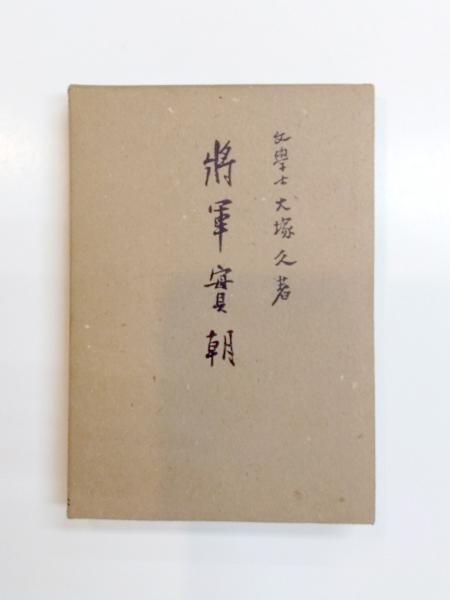 文學士大塚久著
將軍實朝